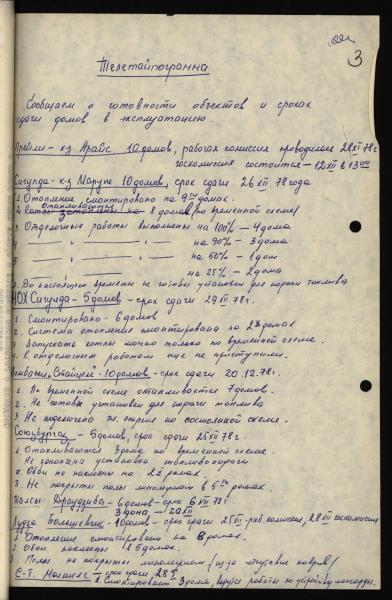 3
Телетайпограмма
Сообщаем о готовности объектов и сроках
сдачи домов в эксплуатацию.
к-з Драйс 10 домов, рабочая комиссия проводилась 28 XI 78 г
госкомиссия состоится - 12 XII в 13 00
Сигулда - к-з Марупе 10 домов, срок сдачи 26 XII 78 года
1. Отопление смонтировано на 9ти домах.
отапливаются
2. Котлы на 8 домах /по временной схеме/
3. Отделочные работы выполнены на 100% - 4 дома
4 — " — " — на 90% - 3 дома
5 — " — на 50% - 1 дом
— " — на 25% - 2 дома
До настоящего времени не готовы установки для подачи топлива
МОХ Сигулда - 5 домов - срок сдачи 29 XII 78 г.
1. Смонтировано - 6 домов
2. Система отопления смонтирована на 2х домах
3. Запускать котлы можно только по временной схеме.
4. К отделочным работам еще не приступили.
"Стайцеле" - 10 домов - срок сдачи 20.12.78 г.
1. По временной схеме отапливается 7 домов.
2. Не готовы установки для подачи топлива
3. Не подключена эл. энергия по постоянной схеме.
- 5 домов, срок сдачи 25 XII 78 г.
1. Отапливаются 3 дома по временной схеме
Не закончена установка топливоподачи
2. Обои не наклеены на 2х домах.
3. Не покрыты полы линолеумом в 5ти домах
Драудзиба - 6 домов - срок 6 XII 78 г.
3 дома - 20 XII
Лудза Большевик - 10 домов - срок сдачи 25 XII - раб. комиссии, 28 XII госкомиссии
1. Отопление смонтировано на 8 домах.
2. Обои наклеены 15 домов.
3. Полы не покрыты линолеумом /из за отсутствия
срок сдачи 28
1. Смонтировано 3 дома, ведутся работы по устройству мансарды.